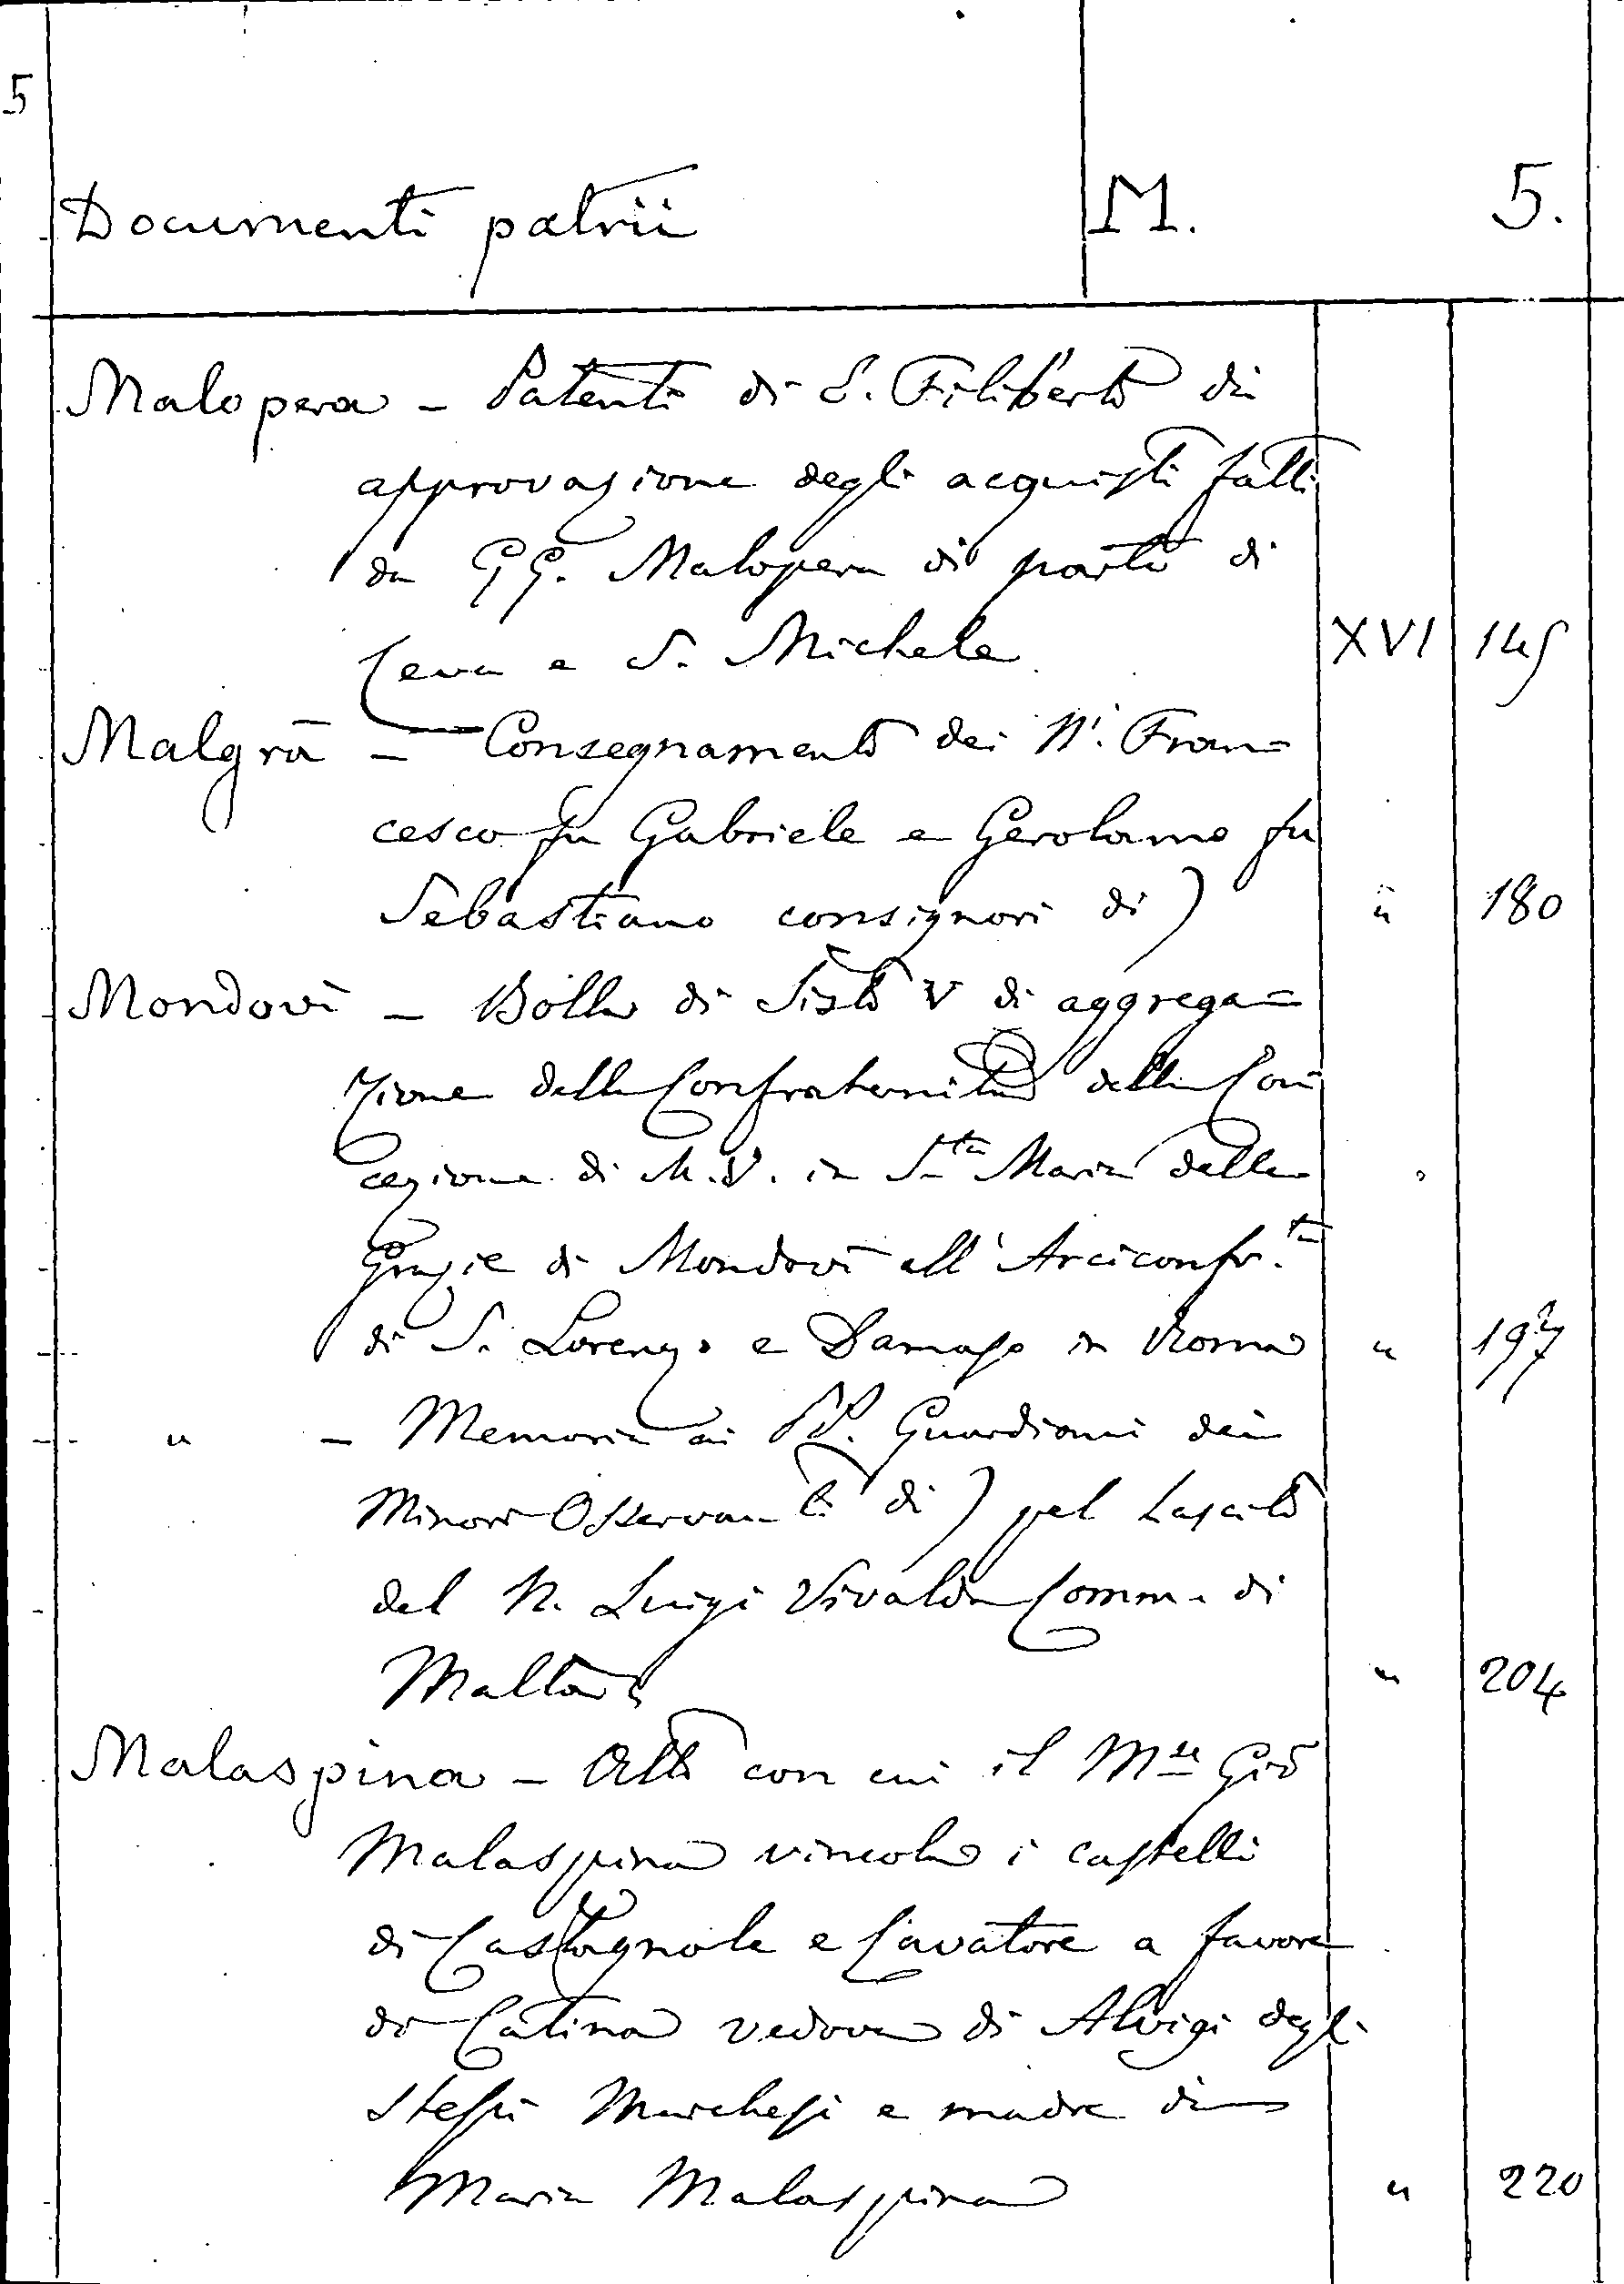 5
Documenti patrii M. 5.
Malopera - Patenti di E. Filiberto di
approvazione degli acquisti fatti
da GG. Malopera di parte di
Ceva e S. Michele XVI 145
Malgrà - Consegnamento dei N.i Fran=
cesco fu Gabriele e Gerolamo fu
Sebastiano consignori di) " 180
Mondovì - Bolla di Sisto V di aggrega=
zione della Confraternita della Con
cezione di M.V. in S.ta Maria delle
Grazie di Mondovì all'Arciconfr.ta
di S. Lorenzo e Damaso in Roma " 197
" - Memoria ai PP. Guardiani dei
Minori Osservanti di) pel Lascito
del N. Luigi Vivalda Comm. di
Malta " 204
Malaspina - Atto con cui il M.se Giõ
Malaspina vincola i castelli
di Castagnole e Cavatore a favore
di Catina vedova di Alvigi degli
stessi Marchesi e madre di
Maria Malaspina " 220